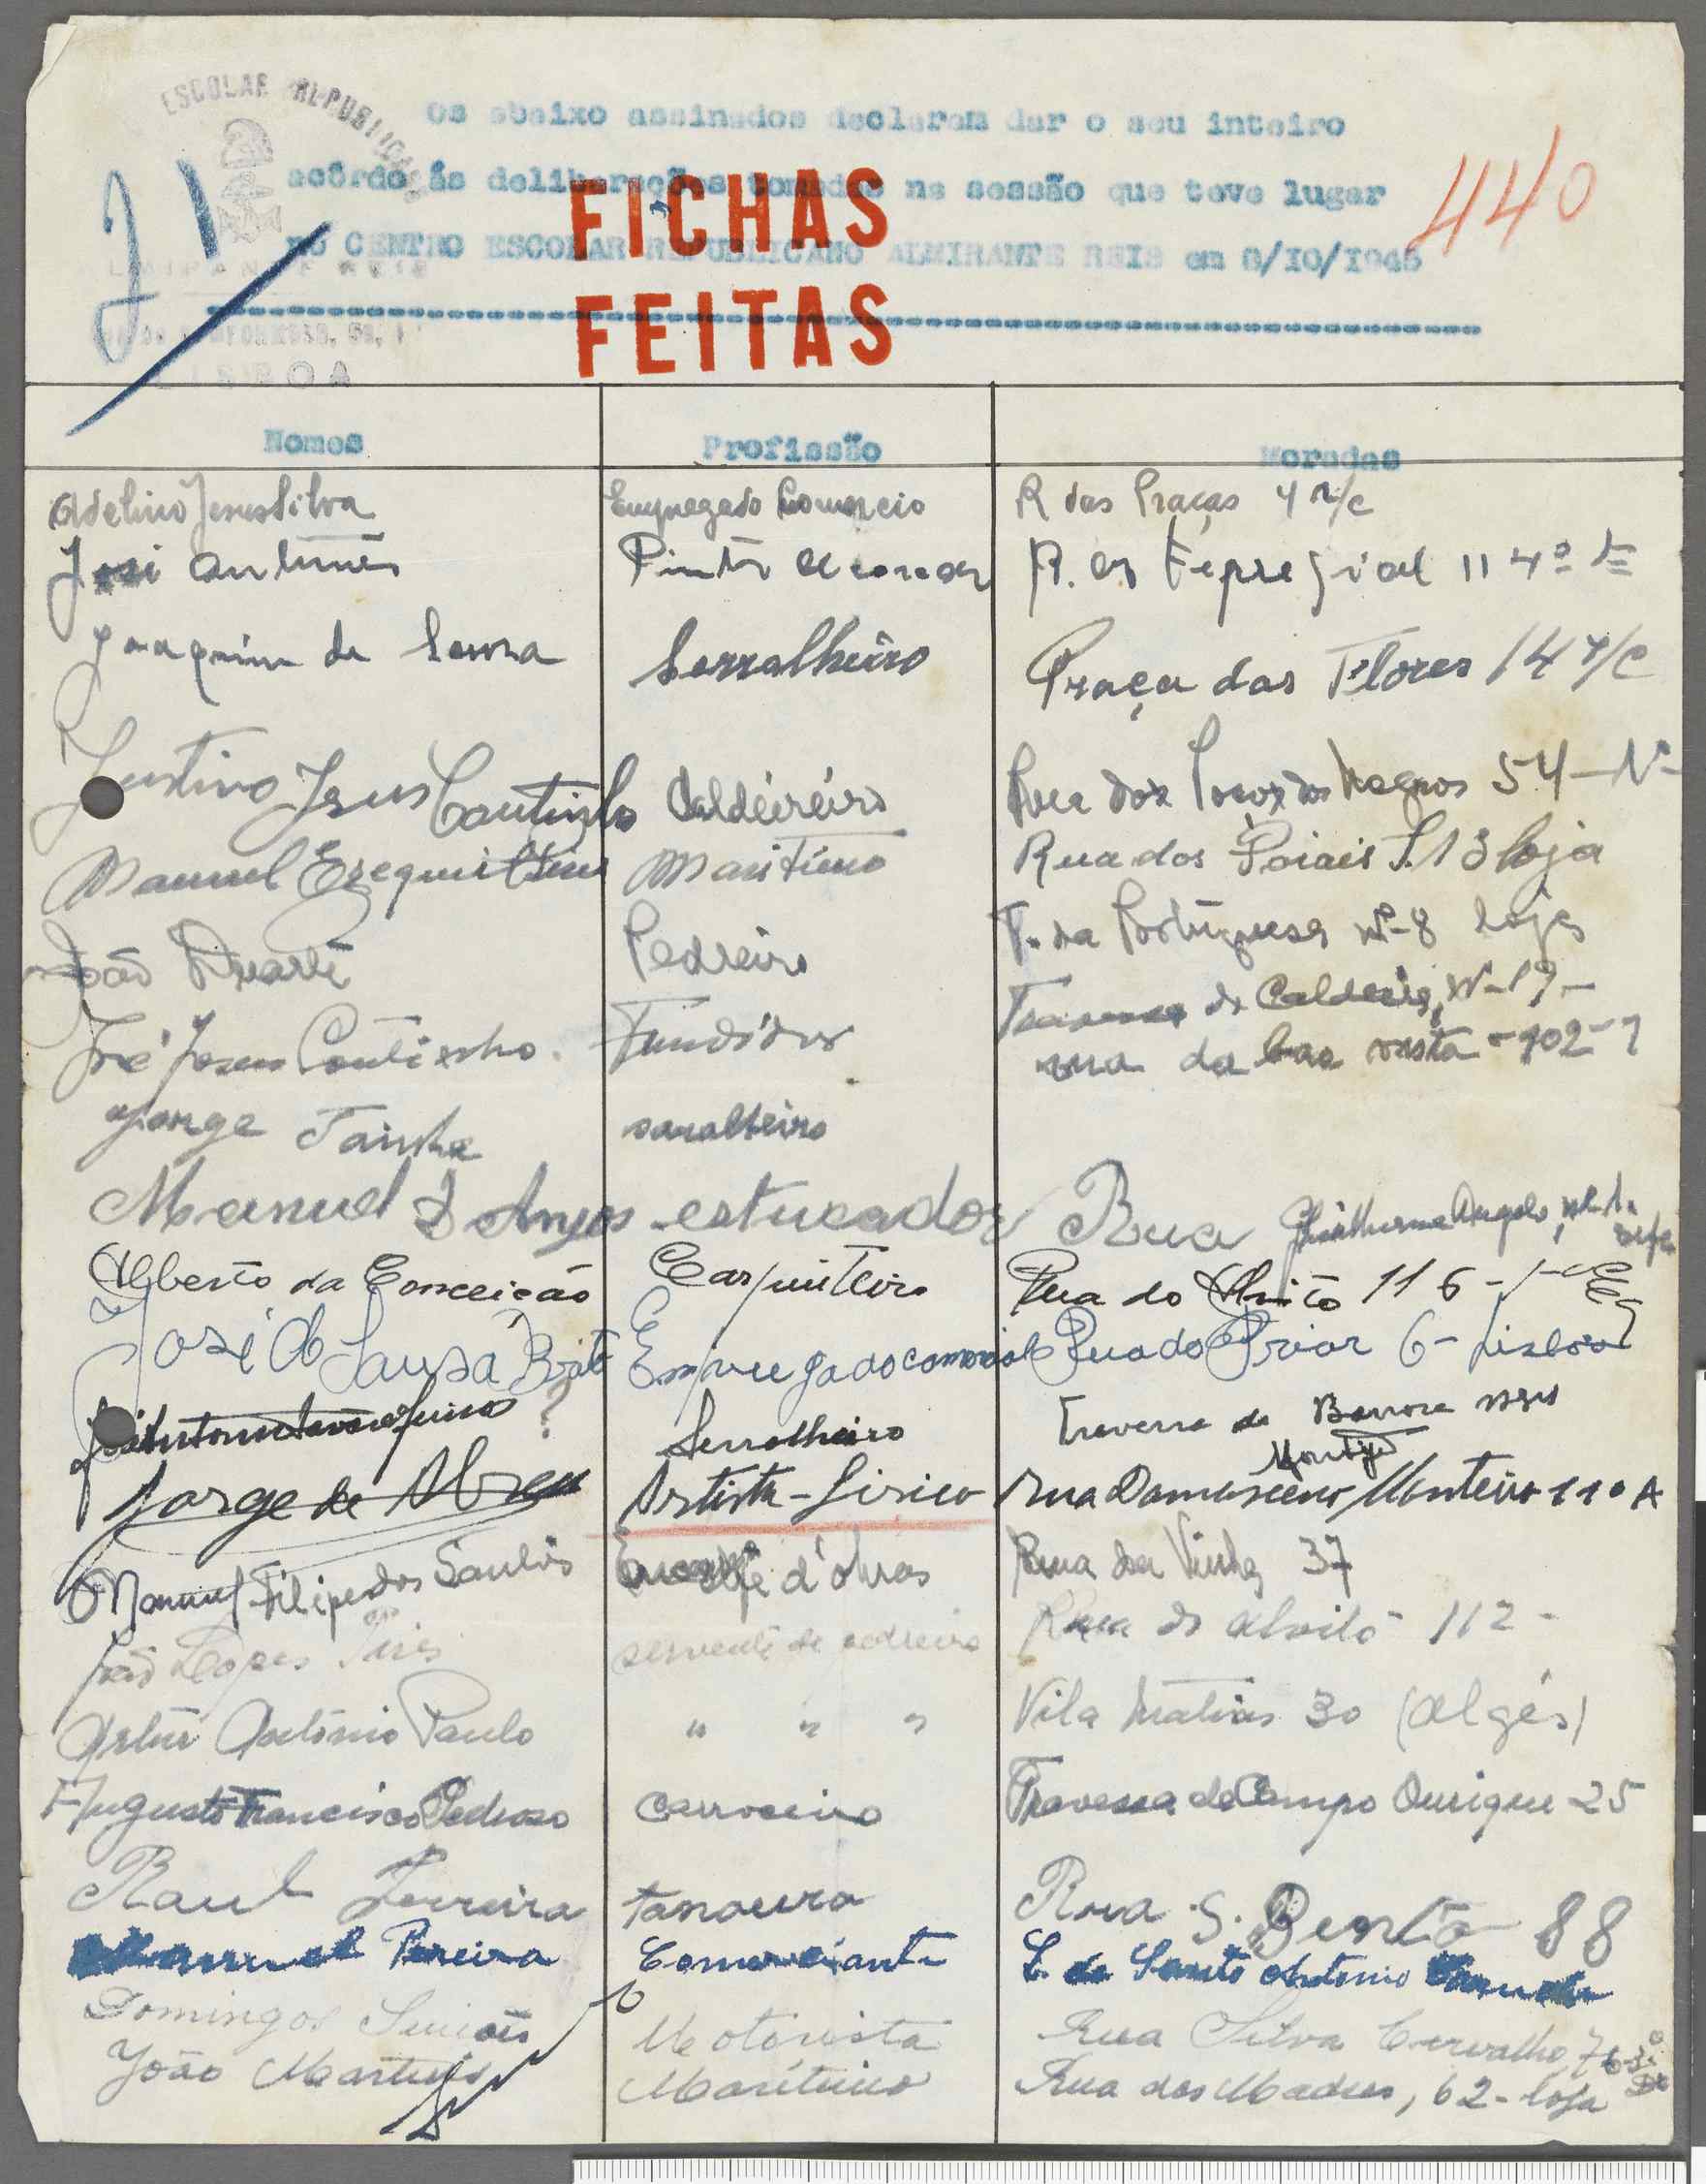 ESCOLAR REPUBLICANO
Os abaixo assinados declaram dar o seu inteiro
acôrdo ás deliberações tomadas na sessão que teve lugar
no CENTRO ESCOLAR REPUBLICANO ALMIRANTE REIS em 8/IO/I945
440
FICHAS
FEITAS
ALMIRANTE REIS
LISBOA
Nomes Profissão Moradas
Adelino Jesus Silva Empregado Comercio R das Praças 4 r/c
José Antunes Pintor R. 11 4º
Joaquim de Sousa Serralheiro Praça das Flores 14 r/c
Justino Jesus Coutinho Caldeireiro Rua dos Poços dos Negros 54
Manuel Ezequiel Maritimo Rua dos Poiais S. 13 loja
João Duarte Pedreiro T. da Portuguesa Nº 8 loja
José Jesus Coutinho Fundidor Travessa do Caldeira, Nº 19
Jorge Tainha saralheiro rua da boa vista
Manuel d Anjos estucador Rua
Alberto da Conceição Carpinteiro Rua do Alvito 116
José de Sousa Brito Empregado comercial Rua do Prior 6 - Lisboa
? Serralheiro Travessa da
Jorge de Abreu Artista-Lirico Rua Damasceno Monteiro 110 A
Manuel Filipe dos Santos d'obras Rua da Vinha 37
João Lopes Pires servente de pedreiro Rua do Alvito - 112 -
Artur António Paulo " " " Vila Matias 30 (Algés)
Augusto Francisco Pedroso Carroceiro Travessa de Campo Ourique 25
Raul Ferreira Tanoeiro Rua S. Bento 88
Manuel Pereira Comerciante C. de Santo Antonio
Domingos Simões Motorista Rua Silva Carvalho, 76-3º
João Martins Marítimo Rua das Madres, 62 - loja